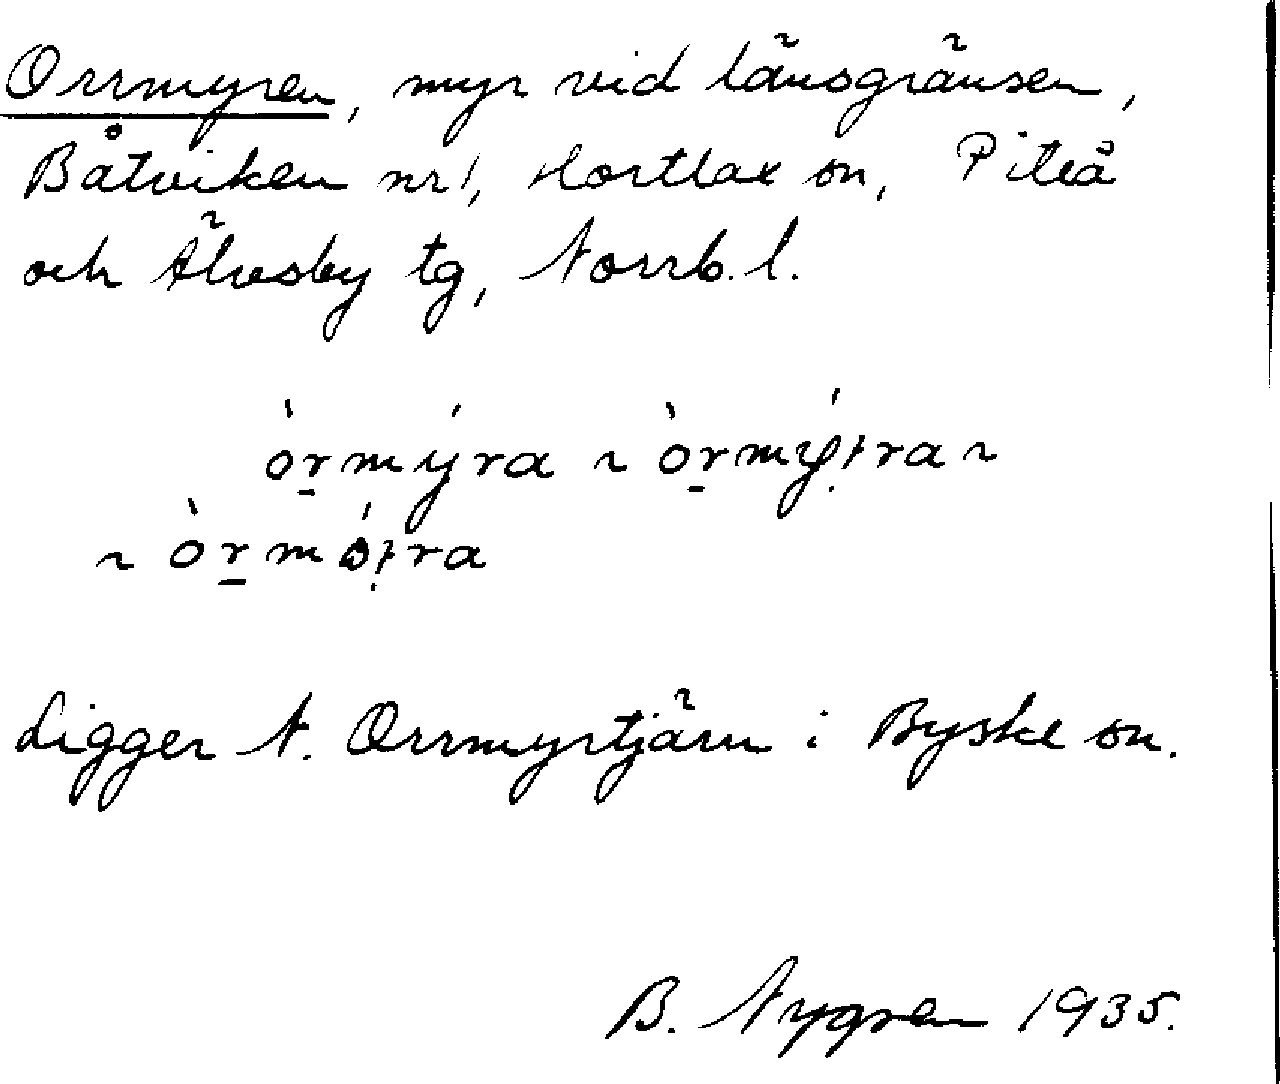 Orrmyren, myr vid länsgränsen,
Båtviken nr 1, Hortlax sn, Piteå
och Älvsby tg, Norrb. l.
òr̠mýra ~ òr̠mỵ́ɟra ~
~ òr̠mọ́ɟra
Ligger N. Orrmyrtjärn i Byske sn.
B. Nygren 1935.